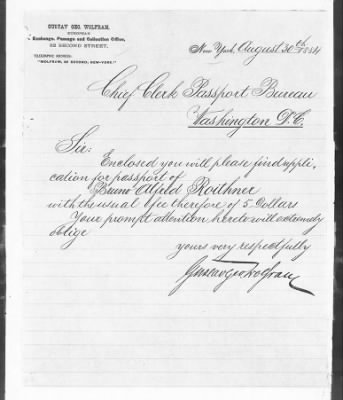 GUSTAV GEO. WOLFRAM,
EUROPEAN
Exchange, Passage and Collection Office,
52 SECOND STREET,
TELEGRAPHIC ADDRESS:
"WOLFRAM, 52 SECOND, NEW-YORK."
New York, August 30th 1884
Chief Clerk Passport Bureau
Washington D.C.
Sir:
Enclosed you will please find appli-
cation for passport of
Bruno Alfred Roithner
with the usual fee therefore of 5 Dollars
Your prompt attention hereto will extremely
oblige
yours very respectfully
Gustav Geo Wolfram